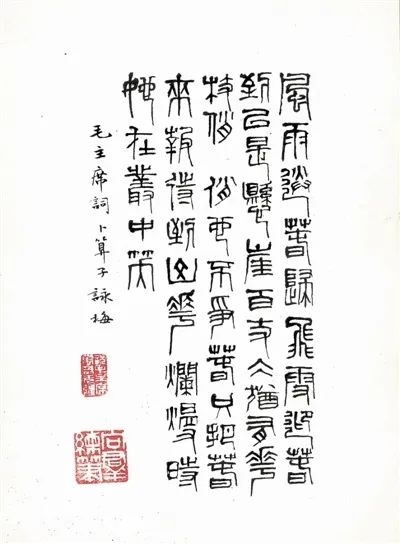 風雨送春歸飛雪迎春
到已是懸崖百丈冰猶有花
枝俏 俏也不爭春只把春
來報待到山花爛漫時
她在叢中笑
毛主席詞卜算子詠梅